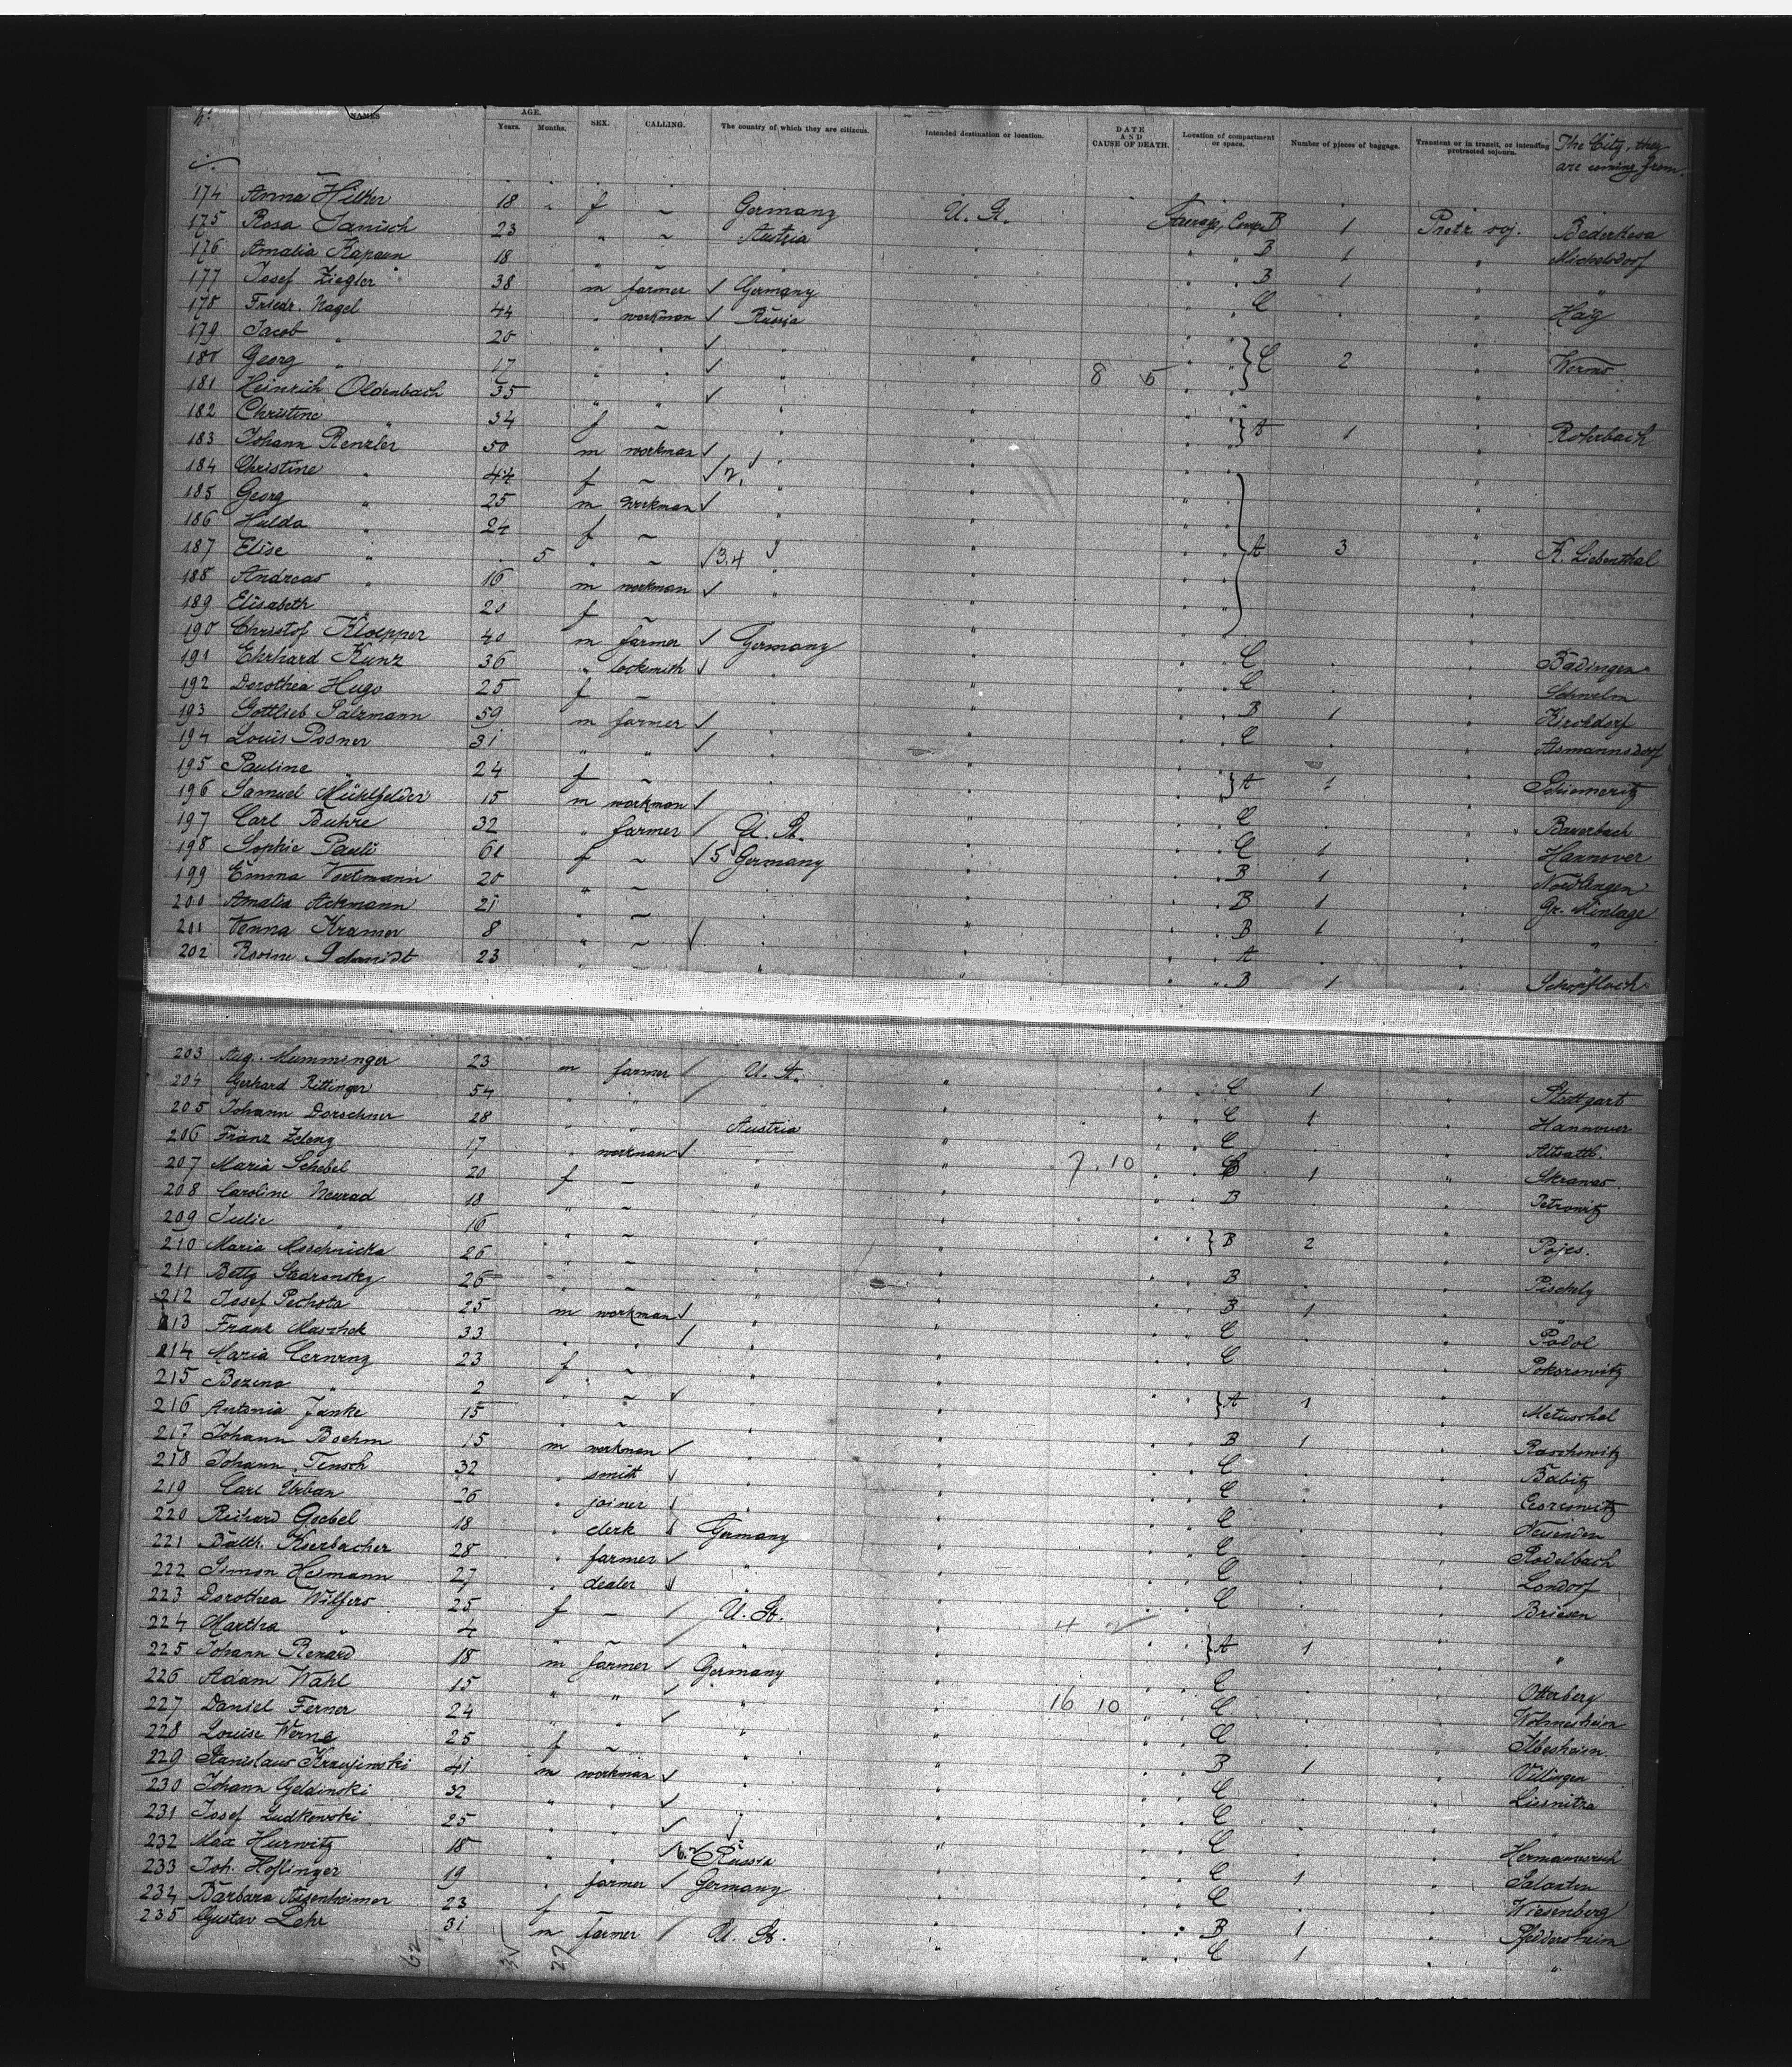 NAMES AGE. Years. Months. SEX. CALLING. The country of which they are citizens. Intended destination or location. DATE AND CAUSE OF DEATH. Location of compartment or space. Number of pieces of baggage. Transient or in transit, or intending protracted sojourn. The City, they are coming from.
174 Anna Hilker 18 f ~ Germany U. St. B 1 Protr soj. Bederkesa
175 Rosa Janisch 23 " ~ Austria " B 1 " Michelsdorf
176 Amalia Kapaun 18 " ~ " " B 1 " "
177 Josef Ziegler 38 m farmer ✓ Germany " C " Haig
178 Friedr. Nagel 44 " workman ✓ Russia "
179 Jacob " 20 " " ✓ " " C 2 " Worms
180 Georg " 17 " " ✓ " " 8 5
181 Heinrich Oldenbach 35 " " ✓ " "
182 Christine " 34 f ~ " " A 1 " Rohrbach
183 Johann Renzler 50 m workman ✓ " "
184 Christine " 44 f ~ ✓ 2, " "
185 Georg " 25 m workman ✓ " "
186 Hulda " 24 f ~ " "
187 Elise " 5 " ~ ✓ 3.4 " " A 3 " K. Liebenthal
188 Andreas " 16 m workman ✓ " "
189 Elisabeth " 20 f ~ " "
190 Christof Kloepper 40 m farmer ✓ Germany " C " Badingen
191 Ehrhard Kunz 36 " locksmith ✓ " " C " Schwelm
192 Dorothea Hugo 25 f ~ " " B 1 " Kirchdorf
193 Gottlieb Salzmann 59 m farmer ✓ " " C " Asmannsdorf
194 Louis Posner 31 " " ✓ " "
195 Pauline " 24 f ~ " " A 1 "
196 Samuel Mühlfelder 15 m workman ✓ " " C " Bauerbach
197 Carl Buhre 32 " farmer / U. St. " C 1 " Hannover
198 Sophie Pauli 61 f ~ ✓ 5 Germany " B 1 "
199 Emma Vortmann 20 " ~ " " B 1 " Gr. Mimlage
200 Amalia Ackmann 21 " ~ " " B 1 " "
201 Venna Kramer 8 " ~ ✓ " " A " "
202 Rosine Schmidt 23 " ~ " " B 1 " Schopfloch
203 Aug. Mumminger 23 m farmer / U. St. " C 1 " Stuttgart
204 Gerhard Rittinger 54 " " / " " C 1 " Hannover
205 Johann Dorschner 28 " " Austria " C " Altsattl.
206 Franz Zeleny 17 " workman ✓ " " 7. 10 C 1 "
207 Maria Schebel 20 f ~ " " B " Petrowitz
208 Caroline Neurad 18 " ~ " "
209 Julie " 16 " ~ " " B 2 " Pojes.
210 Maria Maschnicka 26 " ~ " " B " Pischely
211 Betty 26 " ~ " " B 1 " "
212 Josef Pechota 25 m workman ✓ " " C " Podol
213 Franz Maschek 33 " " ✓ " " C " Pokorowitz
214 Maria 23 f ~ " "
215 Bozena " 2 " ~ ✓ " " A 1 "
216 Antonia Janke 15 " ~ " " B 1 " Raschowitz
217 Johann Boehm 15 m workman ✓ " " C " Babitz
218 Johann 32 " smith ✓ " " C "
219 Carl Urban 26 " joiner ✓ " " C "
220 Richard Goebel 18 " clerk ✓ Germany " C " Rodelbach
221 Balth. 28 " farmer ✓ " " C " Londorf
222 Simon Heimann 27 " dealer ✓ " " C " Briesen
223 Dorothea Wilfers 25 f ~ / U. St. "
224 Martha " 4 " ~ / " " A 1 " "
225 Johann Renard 18 m farmer ✓ Germany " C " Otterberg
226 Adam Wahl 15 " " ✓ " " 16 10 C "
227 Daniel Ferner 24 " " ✓ " " C " Ilbesheim
228 Louise Werne 25 f ~ " " B 1 " Villingen
229 Stanislaus 41 m workman ✓ " " C "
230 Johann Geldinski 32 " " ✓ " " C " "
231 Josef Ludkowski 25 " " ✓ " " C "
232 Max Hurwitz 18 " " Russia " C 1 " Salanten
233 Joh. Hoflinger 19 " farmer ✓ Germany " C " Wiesenberg
234 Barbara 23 f " B 1 " Pfeddersheim
235 Gustav Lehr 31 m farmer / U. St. " C 1 " "
62 35 27